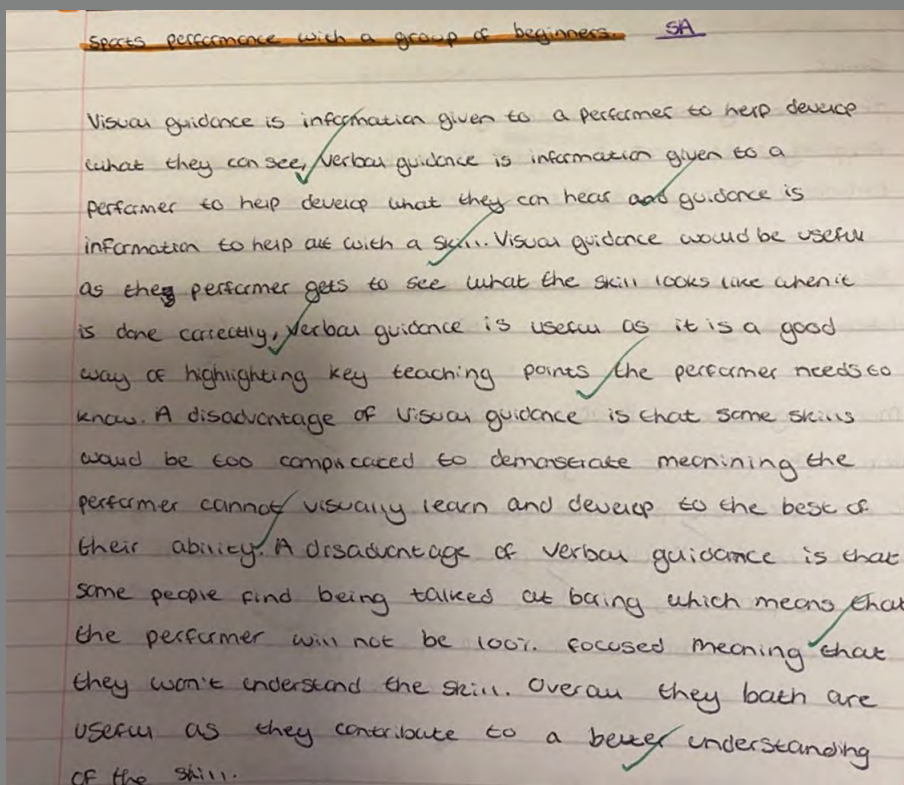 sports performance with a group of beginners. SA
Visual guidance is information given to a performer to help develop
what they can see, verbal guidance is information given to a
performer to help develop what they can hear and guidance is
information to help out with a skill. Visual guidance would be useful
as they performer gets to see what the skill looks like when it
is done correctly, verbal guidance is useful as it is a good
way of highlighting key teaching points the performer needs to
know. A disadvantage of visual guidance is that some skills
would be too complicated to demonstrate meanining the
performer cannot visually learn and develop to the best of
their ability. A disadvantage of verbal guidance is that
some people find being talked at boring which means that
the performer will not be 100% focused meaning that
they won't understand the skill. Overall they both are
useful as they contribute to a better understanding
of the skill.